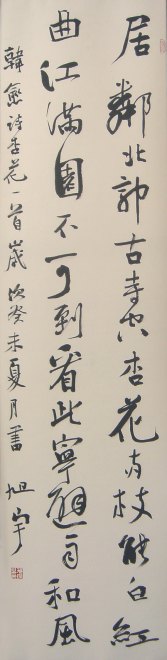 居鄰北郭古寺空杏花兩枝能白紅
曲江滿園不可到看此寧避雨和風
韓愈詩杏花一首歲次癸未夏月書 旭宇